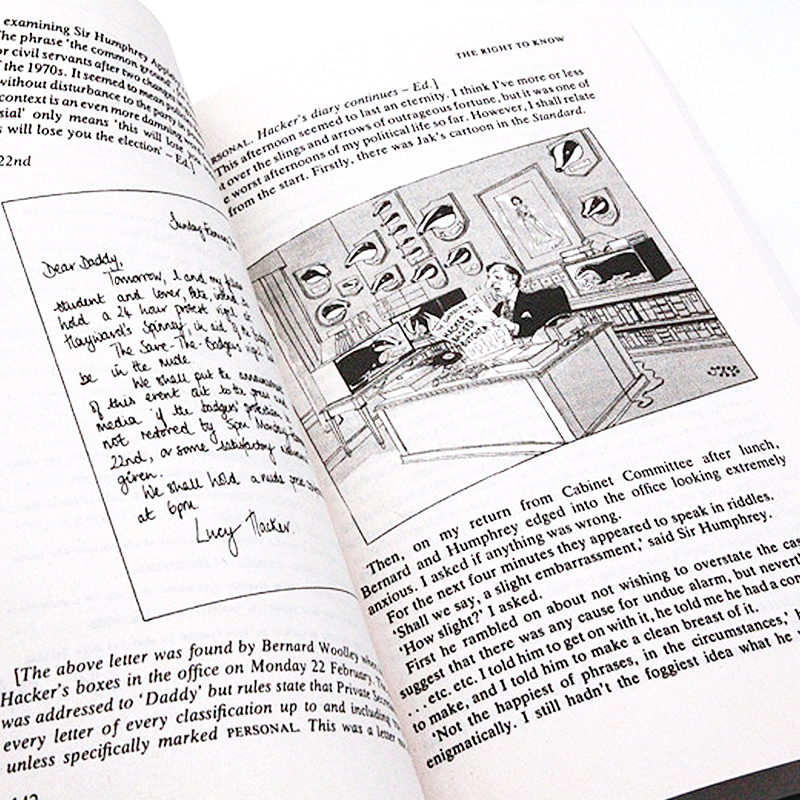 examining Sir Humphrey
The phrase 'the common ground'
or civil servants after two changes
of the 1970s. It seemed to mean
without disturbance to the party
context is an even more damning
sial' only means 'this will lose
s will lose you the election' – Ed.]
22nd
Sunday
Dear Daddy,
Tomorrow, I and my
student and lover, Pete, intend to
hold a 24 hour protest vigil at
Hayward's Spinney, in aid of the
The Save-The-Badgers vigil
be in the nude.
We shall put the
of this event out to the press and
media if the badgers' protection
not restored by 5pm Monday
22nd, or some satisfactory
given.
We shall hold a nude
at 6pm
Lucy Hacker.
[The above letter was found by Bernard Woolley
Hacker's boxes in the office on Monday 22 February.
was addressed to 'Daddy' but rules state that Private
every letter of every classification up to and including
unless specifically marked PERSONAL. This was a letter
THE RIGHT TO KNOW
RSONAL. Hacker's diary continues – Ed.]
This afternoon seemed to last an eternity. I think I've more or less
t over the slings and arrows of outrageous fortune, but it was one of
e worst afternoons of my political life so far. However, I shall relate
from the start. Firstly, there was Jak's cartoon in the Standard.
HACKER THE
BADGER
Then, on my return from Cabinet Committee after lunch,
Bernard and Humphrey edged into the office looking extremely
anxious. I asked if anything was wrong.
For the next four minutes they appeared to speak in riddles.
'Shall we say, a slight embarrassment,' said Sir Humphrey.
'How slight?' I asked.
First he rambled on about not wishing to overstate the
suggest that there was any cause for undue alarm, but
. . . etc. etc. I told him to get on with it, he told me he had a
to make, and I told him to make a clean breast of it.
'Not the happiest of phrases, in the circumstances,'
enigmatically. I still hadn't the foggiest idea what he